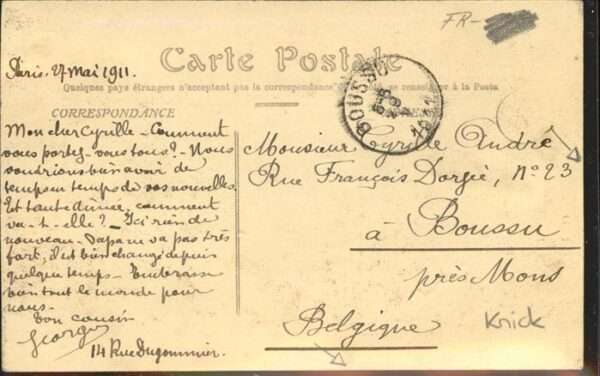 FR-
Carte Postale
Paris. 27 Mai 1911.
Quelques pays étrangers n'acceptent pas la correspondance
se renseigner à la Poste
CORRESPONDANCE
BOUSSU
1911
Mon cher Cyrille - Comment
vous portez-vous tous? - Nous
voudrions bien avoir de
temps en temps de vos nouvelles.
Et tante Aimée, comment
va-t-elle? - Ici rien de
nouveau - Papa ne va pas très
fort, il est bien changé depuis
quelque temps - Embrasse
bien tout le monde pour
nous -
Ton cousin
Georges
14 Rue Dugommier.
Monsieur Cyrille André
Rue François Dorzée, N° 23
à
Boussu
près Mons
Belgique
Knick